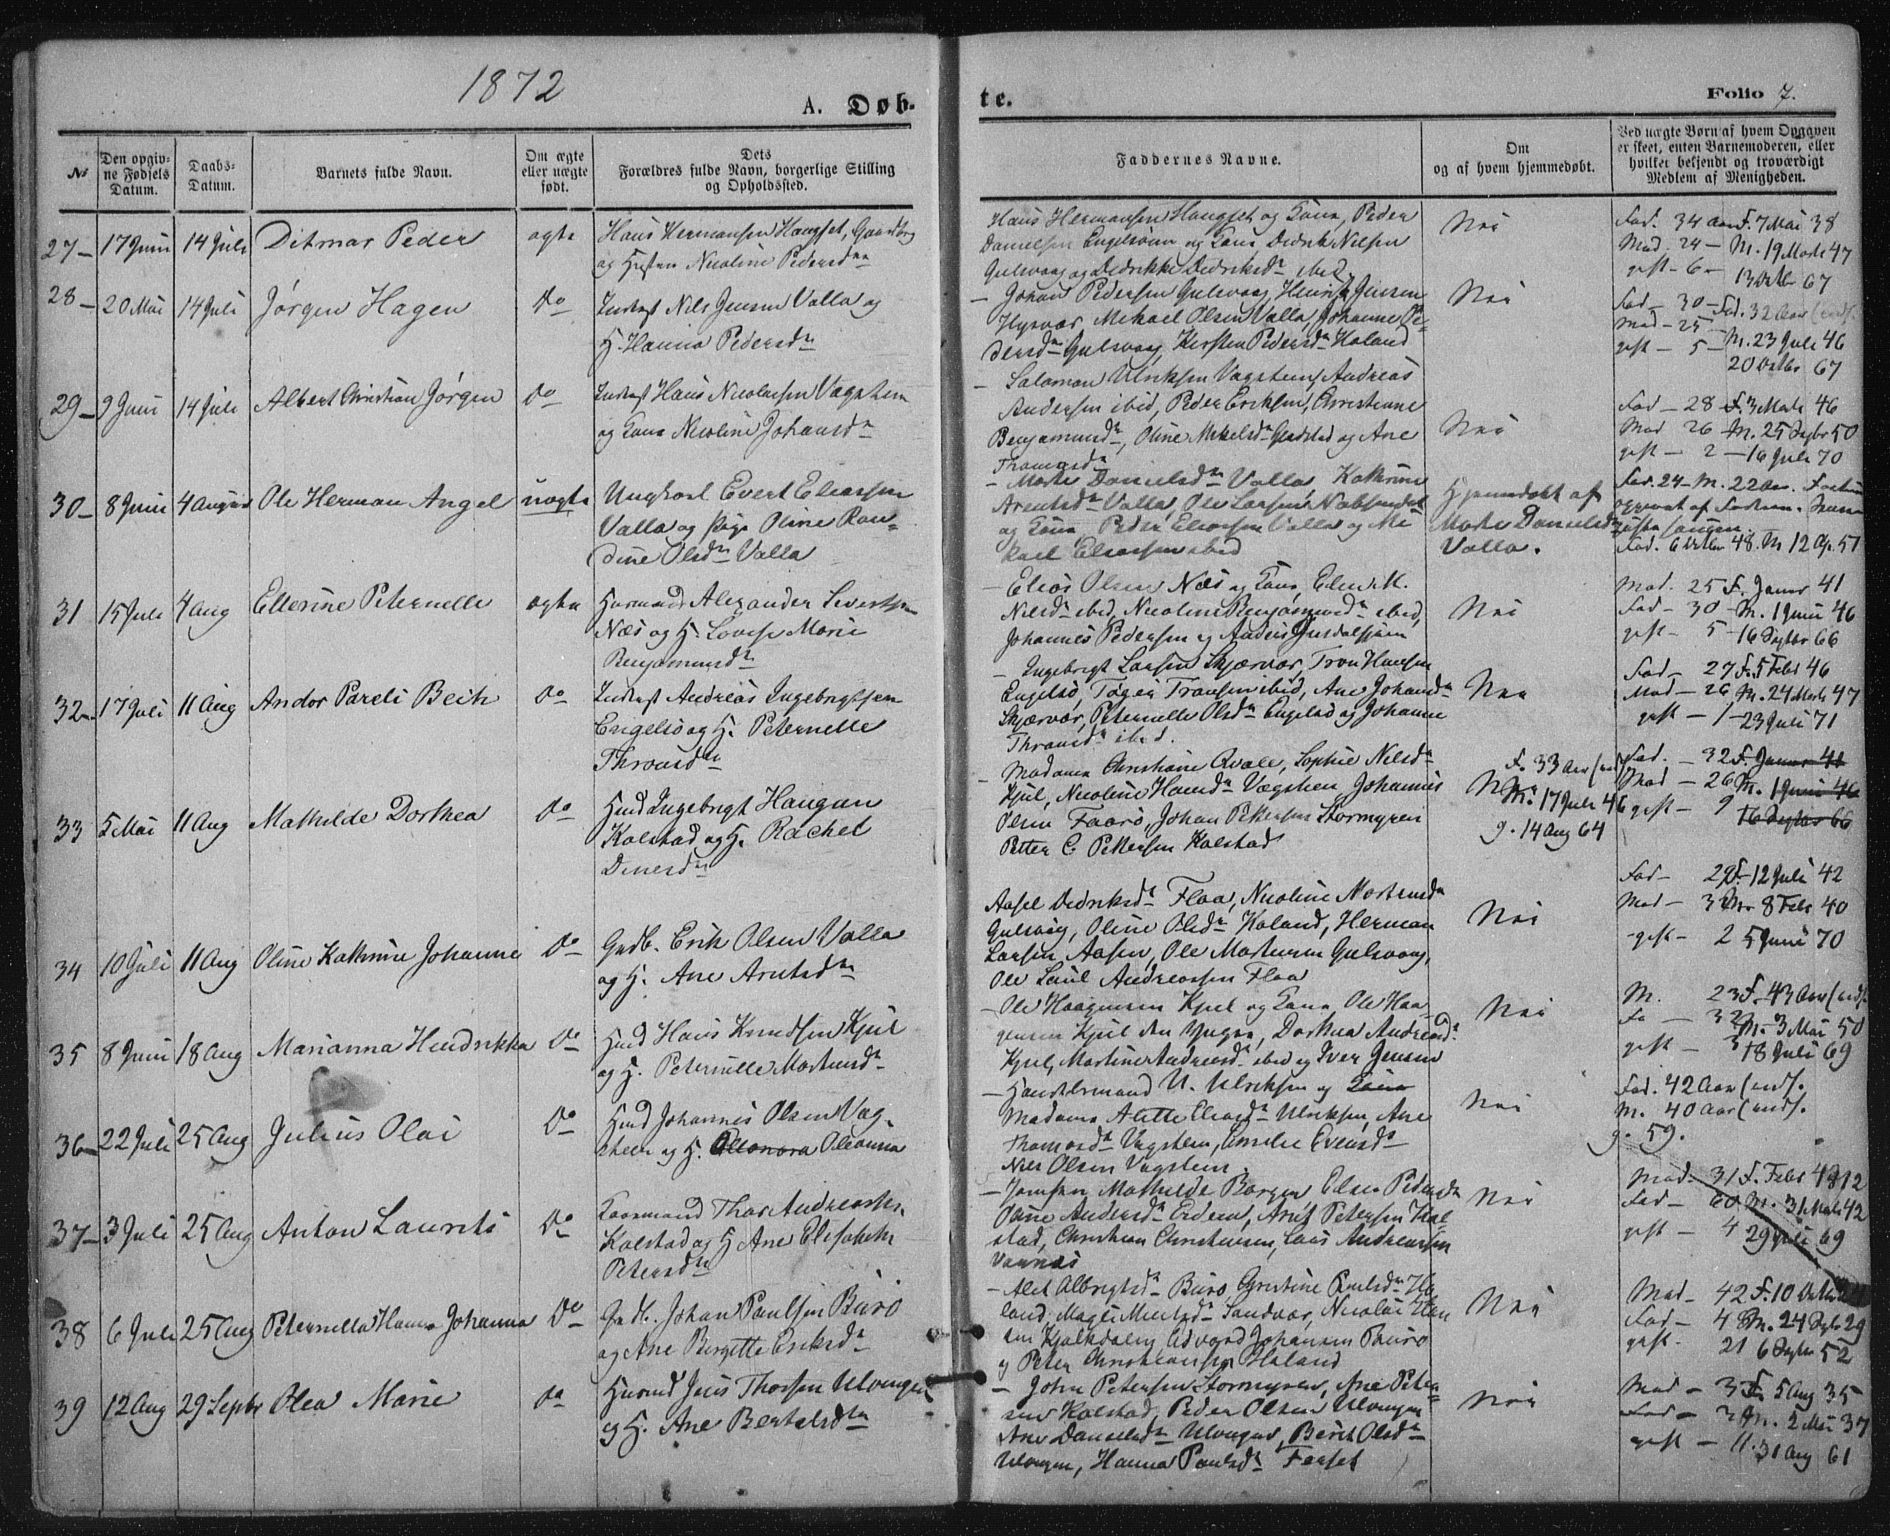 1872
A. Døb-
te.
Folio 7.
№
Den opgiv-
ne Fødsels
Datum.
Daabs-
Datum.
Barnets fulde Navn.
Om ægte
eller uægte
født.
Dets
Forældres fulde Navn, borgerlige Stilling
og Opholdssted.
Faddernes Navne.
Om
og af hvem hjemmedøbt.
Ved uægte Børn af hvem Opgaven
er skeet, enten Barnemoderen, eller
hvilket bekjendt og troværdigt
Medlem af Menigheden.
27 - 17 Juni 14 Juli Ditmar Peder ægte
Hans Hermansen Haugset, Gaardbrg
og Nicoline Pedersdtr
Hans Hermansen Haugset og Kona, Peder
Danielsen Engelsøen og Kona Dedrik Nilsen
Gulsvaag og Dedrikke Dedriksdr ibid
Nei
Fad. 34 Aar F. 7 Mai 38
Mod. 24 - M. 19 Marts 47
gift - 6 - 13 Octbr 67
28 - 20 Mai 14 Juli Jørgen Hagen Do
Inderst Nils Jensen Valla og
H. Hanna Pedersdr
- Johan Pedersen Gulsvaag, Henrik Jensen
Hysvær Mekael Olsen Valla, Johanne Pe-
dersdr Gulsvaag, Kirsten Pedersdr Høland
Nei
Fad - 30 - Fad. 32 Aar (ends.
Mod - 25 - M. 23 Juli 46
gift - 5 - 20 Octbr 67
29 - 9 Juni 14 Juli Albert Christian Jørgen do
Inderst Hans Nicolaisen Vægsten
og Kona Nicoline Johansdr
- Salamon Ulriksen Vægsten, Andreas
Andersen ibid, Peder Eriksen, Christianne
Benjaminsdr, Oline Mikelsdr Gladstad og Ane
Thomasdr
Nei
Fad - 28 - F. 3 Marts 46
Mod 26 - M. 25 Septbr 50
gift - 2 - 16 Juli 70
30 - 8 Juni 4 August Ole Herman Angel uægte
Ungkarl Evert Eliassen
Valla og Pige Oline Ran-
dine Olsdr Valla
- Marte Danielsdr Valla Kathrine
Arentsdr Valla, Ole Larsen
og Kona Peder Eliassen Valla og Mi
kael Eliassen ibid
Hjemmedøbt af
Marte Danielsdr
Valla.
Fad. 24 - M. 22 Aar.
opgivet af Faderen.
Fad. 6 Octbr 48. M 12 Ap. 51
31 15 Juli 4 Aug Ellerine Peternelle ægte
Husmand Alexander Sivertsen
Næs og H. Lovise Marie
Benjaminsdr
- Elias Olsen Næs og Kona, Elen M.
Nilsdr ibid, Nicoline Benjaminsdr ibid,
Johannes Pedersen og Anders
Nei
Mod. 25 F. Januar 41
Fad - 30 - M. 1 Juni 46
gift - 5 - 16 Septbr 66
32 - 17 Juli 11 Aug Andor Pareli Beck Do
Inderst Andreas Ingebrigtsen
Engelsø og H. Peternelle
Thronsdr
- Ingebrigt Larsen Skjærvær, Tron Hansen
Engelsø, Tøger Tronsen ibid, Ane Johansdr
Skjærvær, Peternelle Olsdr Engelsø og Johanne
Thronsdr ibid.
Nei
Fad - 27 F. 5 Febr 46
Mod - 26 M. 24 Marts 47
gift - 1 - 23 Juli 71
33 5 Mai 11 Aug Mathilde Dorthea Do
Husmd Ingebrigt Haugan
Kolstad og H. Rachel
Dinesdr
- Madame Christiane Qvale, Sophie Nilsdr
Kjul, Nicoline Hansdr Vægsten Johannes
Olsen Faarø, Johan Pettersen Stormyren
Petter C. Pettersen Kolstad
F. 33 Aar (ends.
M. 17 Juli 46
g. 14 Aug 64
Fad. - 32 F. Januar 41
Mod - 26 M. 1 Juni 46
gift - 9 16 Septbr 66
34 10 Juli 11 Aug Oline Kathrine Johanne Do
Grdb. Erik Olsen Valla
og H. Ane Arntsdr
Aasel Dedriksdr Flaa, Nicoline Mortensdr
Gulsvåg, Oline Olsdr Høland, Herman
Larsen Aasen, Ole Mortensen Gulsvaag,
Ole Paul Andreassen Flaa
Nei
Fad - 29 F. 12 Juli 42
Mod - 32 M. 8 Febr 40
gift - 2 5 Juni 70
35 8 Juni 18 Aug Marianna Hendrikka Do
Husmd Hans Knudsen Kjul
og H. Peternelle Mortensdr
- Ole Haagensen Kjul og Kona Ole Haa-
gensen Kjul den Yngre, Dorthea Andreasdr
Kjul, Martine Andreasdr ibid og Iver Jensen
Nei
M. 23 F. 43 Aar (ends.
Fa - 32 M. 3 Mai 50
gift - 3 18 Juli 69
36 - 22 Juli 25 Aug Julius Olai Do
Husmd Johannes Olsen Væg-
steen og H. Elleonora Oleanna
- Handelsmand U. Ulriksen og Kona
Madame Alette Eliasdr Ulriksen, Ane
Thomasdr Vægsten, Emilie Evensdr
Nils Olsen Vægsten
Nei
Fad. 42 Aar (ends.
M. 40 Aar (ends.
g. 59.
37 - 3 Juli 25 Aug Anton Laurits Do
Kaarmand Thor Andreassen
Kolstad og H Ane Elisabeth
Petersdr
- Jomfru Mathilde Borgen Elen Pedersdr
Oline Andersdr Erdem, Arnt Petersen Kol-
stad, Christian Christensen, Lars Andreassen
Vannes
Nei
Mod - 31 F. Febr 1812
Fad - 60 M. 31 Marts 42
gift - 4 29 Juli 69
38 6 Juli 25 Aug Peternella Hanna Johanna Do
Grdb. Johan Paulsen Burø
og Ane Birgitte Eriksdr
- Alet Albrigtsdr Burø, Christine Paulsdr Hø-
land, Nicolai Han
sen Edvard Johansen Burø
og Peter Christiansen Høland
Nei
Mod - 42 F. 10 Octbr
Fad - 48 M. 24 Septbr 29
gift - 21 6 Septbr 52
39 12 Aug 29 Septbr Olea Marie do
Husmd Jens Thorsen Ulvingen
og H. Ane Bertelsdtr
- John Petersen Stormyren, Ane Peter-
sen Kolstad, Peder Olsen Ulvingen
Ane Danielsdr Ulvingen, Berit Olsdr
Ulvingen, Hanna Paulsdr Forset
Nei
Mod - F. 5 Aug 35
Fad - M. 2 Mai 37
gift - 11. 31 Aug 61